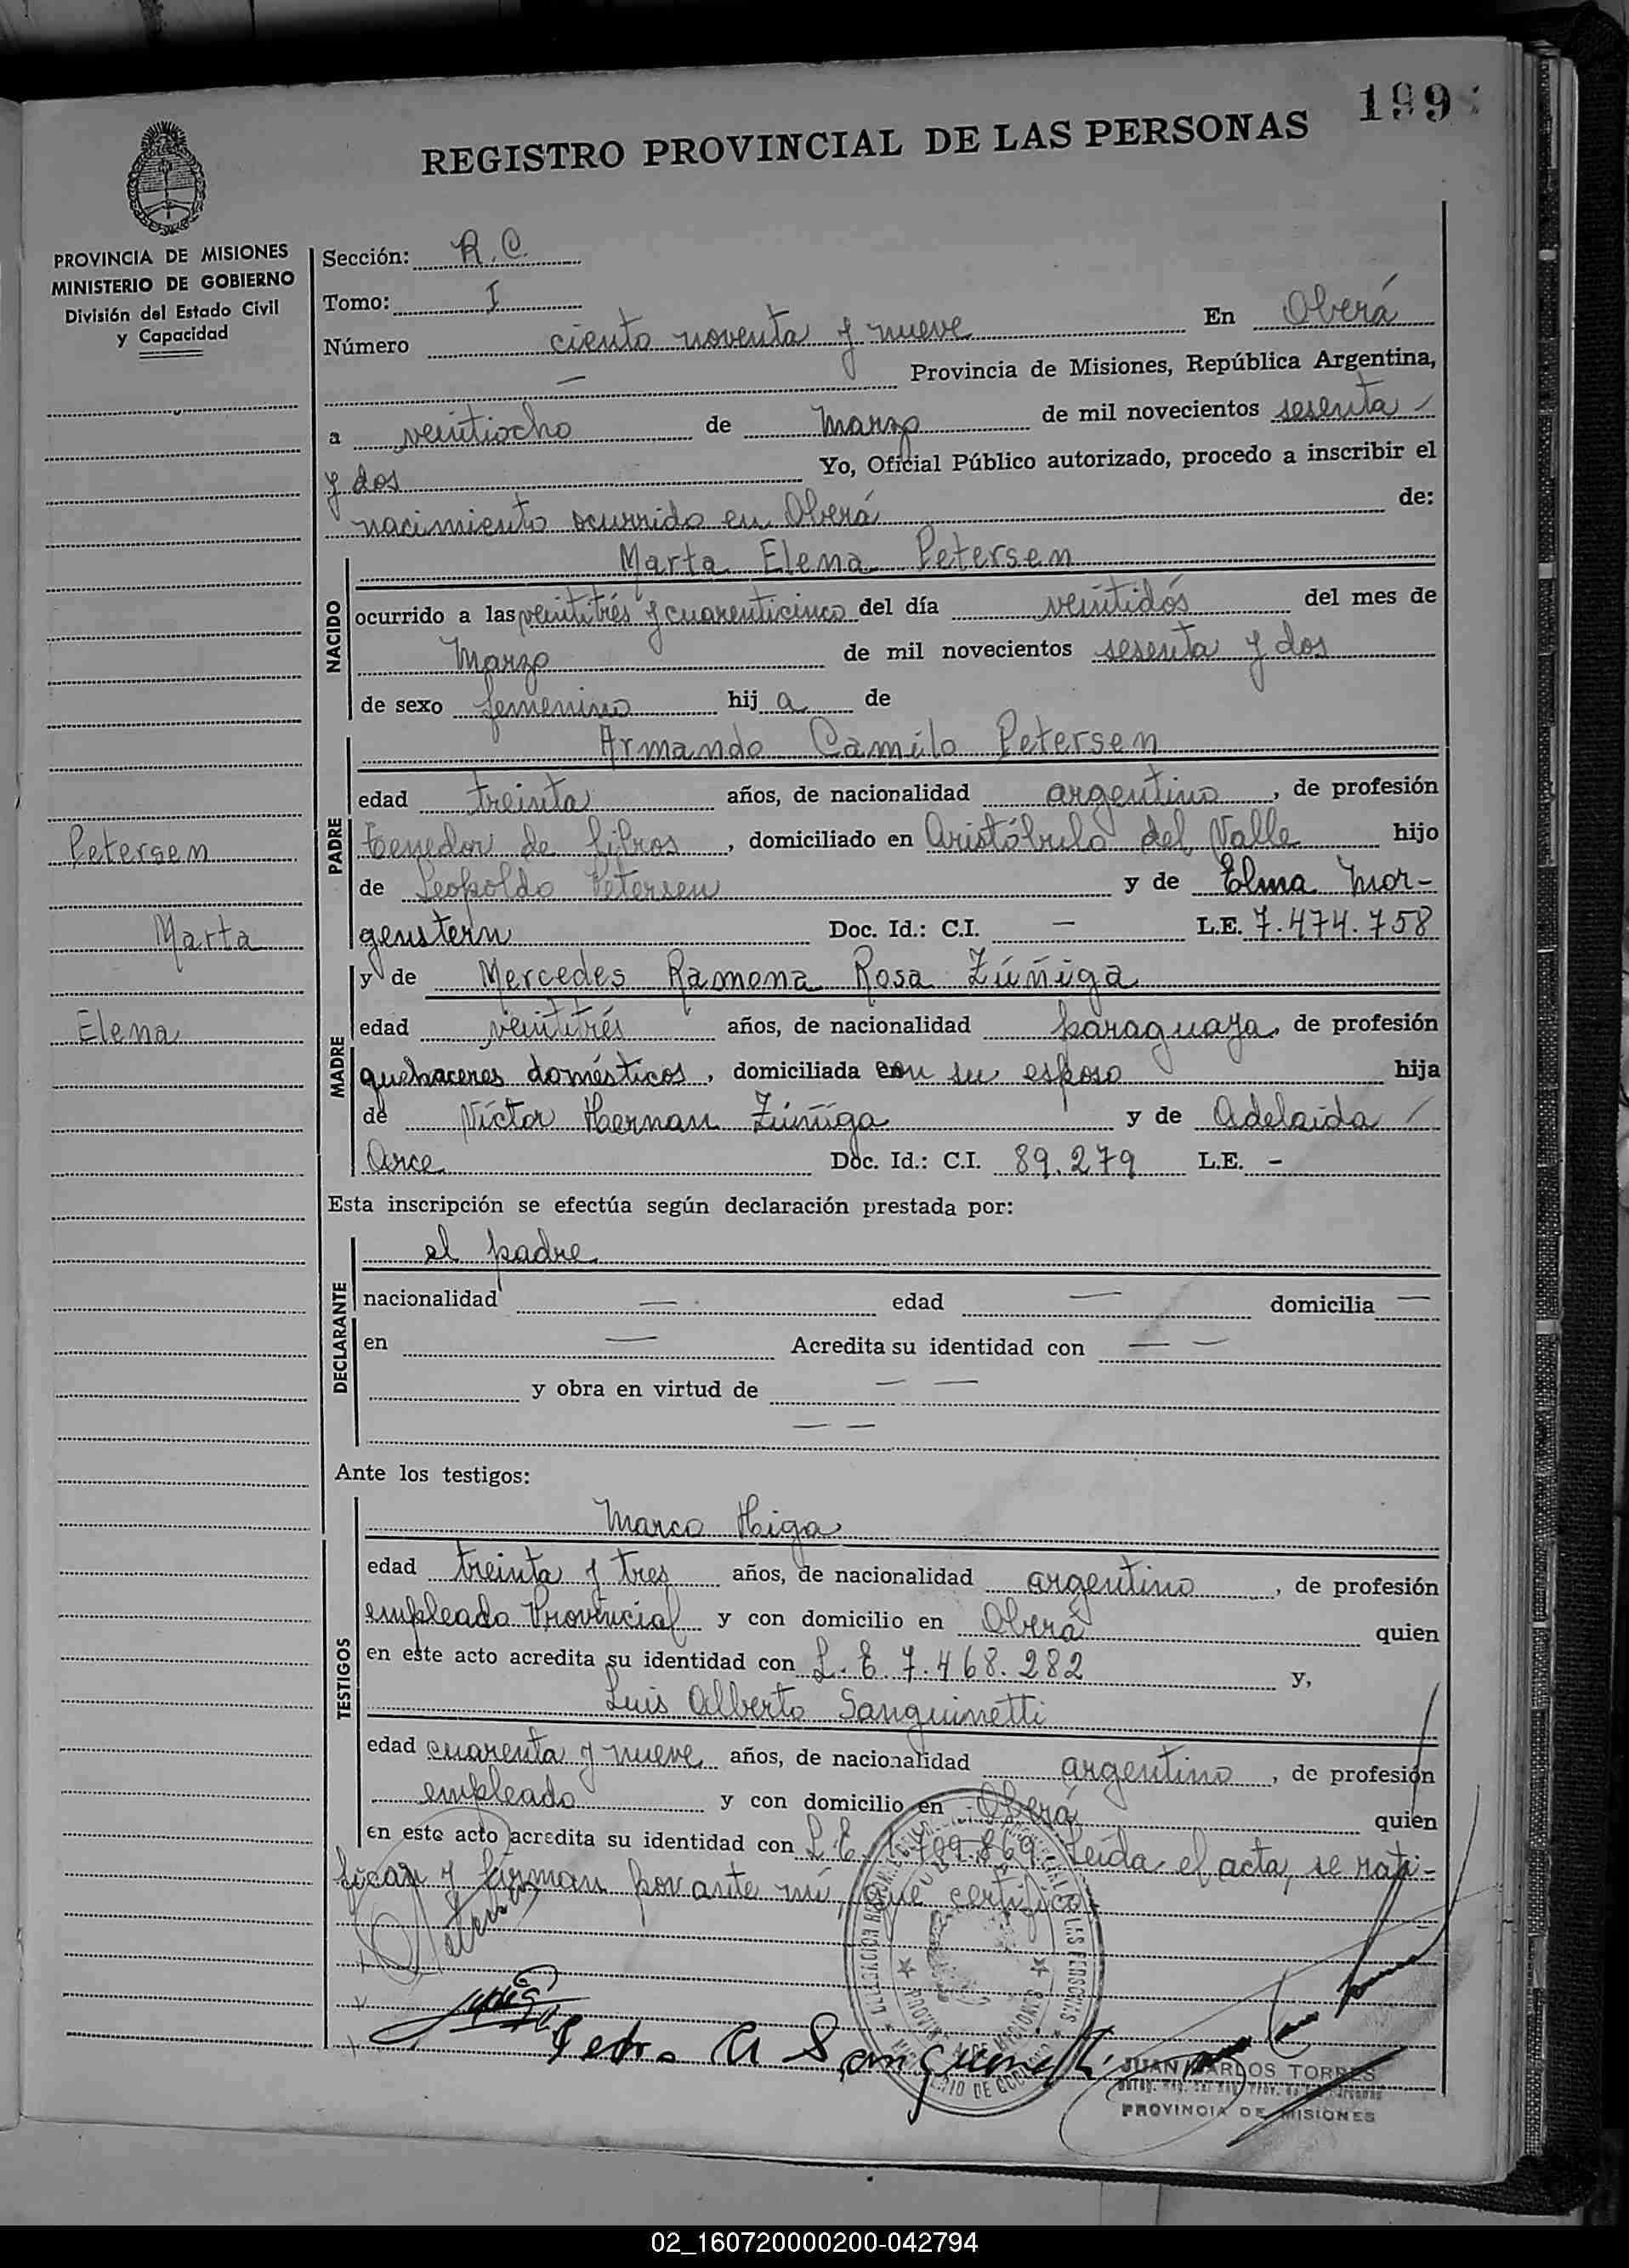 199
REGISTRO PROVINCIAL DE LAS PERSONAS
PROVINCIA DE MISIONES
MINISTERIO DE GOBIERNO
División del Estado Civil
y Capacidad
Petersen
Marta
Elena
Sección: R. C.
Tomo: I
Número ciento noventa y nueve En Oberá
— Provincia de Misiones, República Argentina,
a veintiocho de Marzo de mil novecientos sesenta
y dos Yo, Oficial Público autorizado, procedo a inscribir el
nacimiento ocurrido en Oberá de:
NACIDO
Marta Elena Petersen
ocurrido a las veintitrés y cuarenticinco del día veintidós del mes de
Marzo de mil novecientos sesenta y dos
de sexo femenino hij a de
PADRE
Armando Camilo Petersen
edad treinta años, de nacionalidad argentino, de profesión
tenedor de libros, domiciliado en Aristóbulo del Valle hijo
de Leopoldo Petersen y de Elma Mor-
genstern Doc. Id.: C.I. — L.E. 7.474.758
y de Mercedes Ramona Rosa Zúñiga
MADRE
edad veintitrés años, de nacionalidad paraguaya, de profesión
quehaceres domésticos, domiciliada con su esposo hija
de Víctor Hernan Zúñiga y de Adelaida
Arce Doc. Id.: C.I. 89.279 L.E. -
Esta inscripción se efectúa según declaración prestada por:
DECLARANTE
el padre
nacionalidad — edad — domicilia —
en — Acredita su identidad con — —
y obra en virtud de — —
— —
Ante los testigos:
TESTIGOS
Marco Higa
edad treinta y tres años, de nacionalidad argentino, de profesión
empleado Provincial y con domicilio en Oberá quien
en este acto acredita su identidad con L. E. 7.468.282 y,
Luis Alberto Sanguinetti
edad cuarenta y nueve años, de nacionalidad argentino, de profesión
empleado y con domicilio en Oberá quien
en este acto acredita su identidad con L. E. Leída el acta, se rati-
fican y firman por ante mí, que certifico
Pedro A Sanguinetti
JUAN CARLOS TORRES
PROVINCIA DE MISIONES
02_160720000200-042794